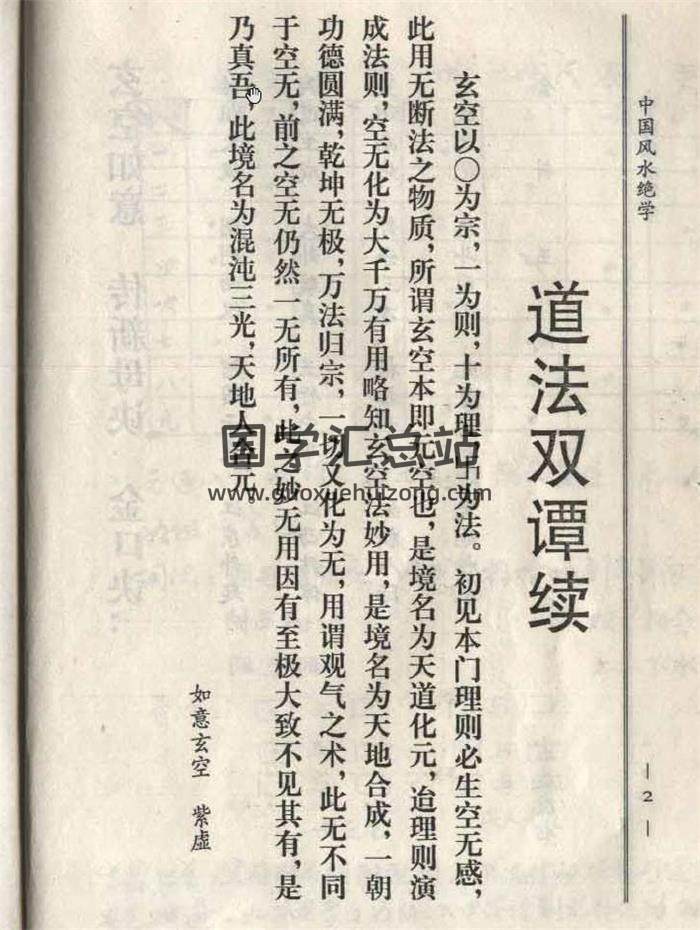 中国风水绝学
— 2 —
道法双谭续
玄空以○为宗，一为则，十为理，中为法。初见本门理则必生空无感，
此用无断法之物质，所谓玄空本即无空也，是境名为天道化元，迨理则演
成法则，空无化为大千万有用略知玄空法妙用，是境名为天地合成，一朝
功德圆满，乾坤无极，万法归宗，一切又化为无，用谓观气之术，此无不同
于空无，前之空无仍然一无所有，此之妙无用因有至极大致不见其有，是
乃真吾，此境名为混沌三光，天地人合元
如意玄空 紫虚
国学汇总站
www.guoxuehuizong.com